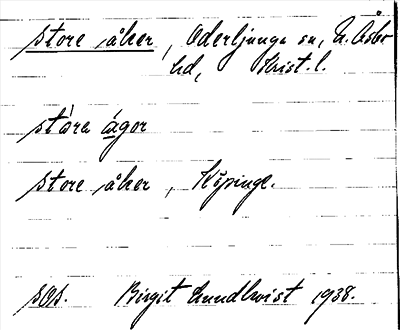 store åker, Oderljunga sn, N. Åsbo
hd, Krist. l.
stóra ágor
store åker, Köpinge.
sOs. Birgit Lundkvist 1938.